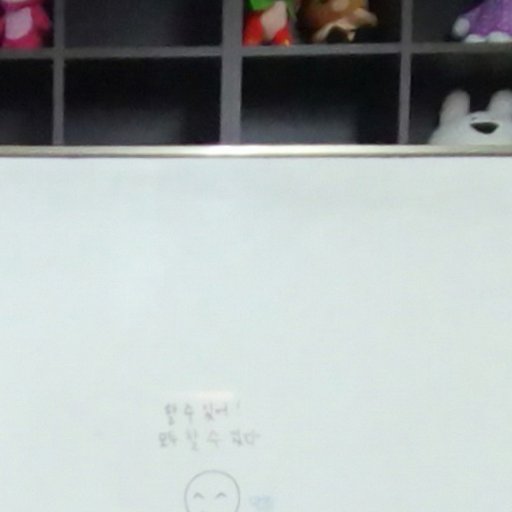 할 수 있어!
모두 할 수 있다